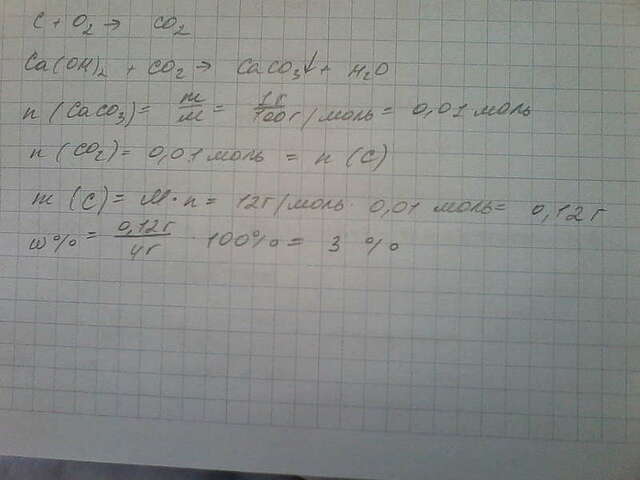 C + O₂ → CO₂
Ca(OH)₂ + CO₂ → CaCO₃↓ + H₂O
n (CaCO₃) = m/M = 1г/100г/моль = 0,01 моль
n (CO₂) = 0,01 моль = n (C)
m (C) = M · n = 12г/моль · 0,01 моль = 0,12 г
ω% = 0,12г/4г · 100% = 3 %